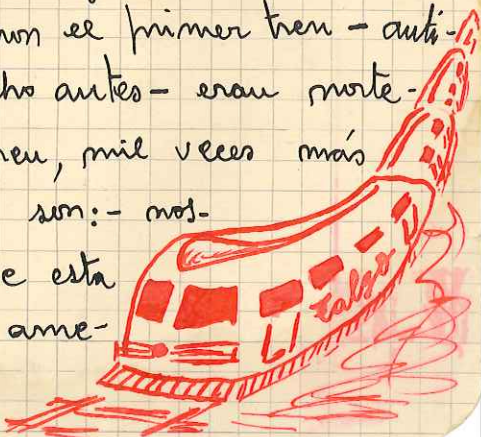 ron el primer tren - anti-
cho antes - eran norte-
ren, mil veces más
son: - nos-
e esta
ame-
talgo